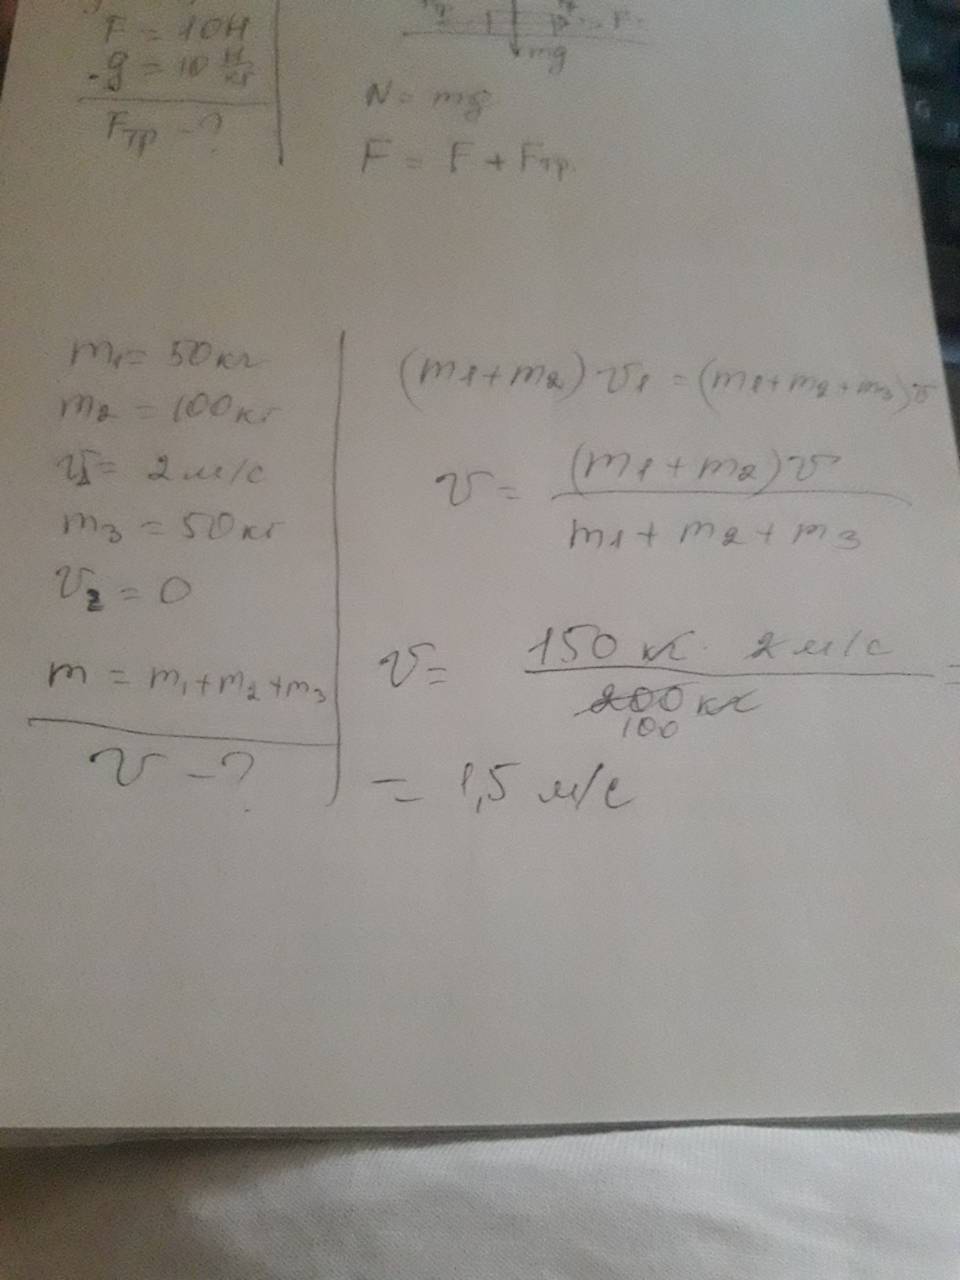 F = 10Н
g = 10 Н/кг
Fтр - ?
mg
N = mg
F = F + Fтр.
m₁ = 50 кг
m₂ = 100 кг
v₁ = 2 м/с
m₃ = 50 кг
v₂ = 0
m = m₁ + m₂ + m₃
v - ?
(m₁ + m₂) v₁ = (m₁ + m₂ + m₃) v
v = (m₁ + m₂) v
m₁ + m₂ + m₃
v = 150 кг · 2 м/с =
200 кг
100
= 1,5 м/с